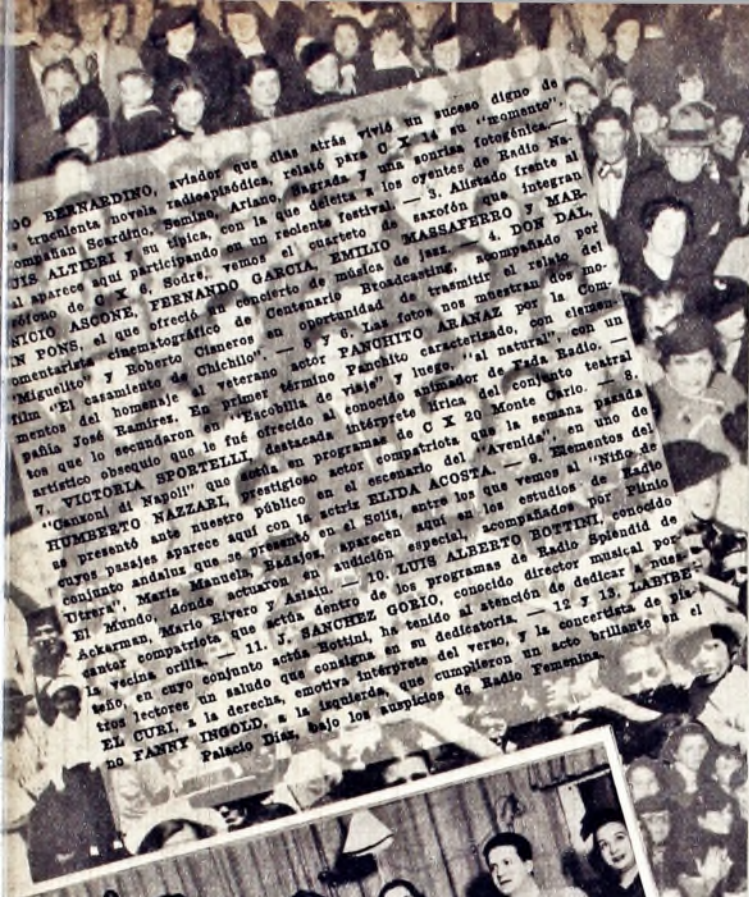 DO BERNARDINO, aviador que días atrás vivió un suceso digno de
a truculenta novela radioepisódica, relató para C X 14 su "momento".
ompañan Scardino, Semino, Ariano, Sagrada y una sonrisa fotogénica.—
UIS ALTIERI y su típica, con la que deleita a los oyentes de Radio Na-
al aparece aquí participando en un reciente festival. — 3. Alistado frente al
rófono de C X 6, Sodre, vemos el cuarteto de saxofón que integran
NICIO ASCONE, FERNANDO GARCIA, EMILIO MASSAFERRO y MAR-
N PONS, el que ofreció un concierto de música de jazz. — 4. DON DAL,
omentarista cinematográfico de Centenario Broadcasting, acompañado por
"Miguelito" y Roberto Cisneros en oportunidad de trasmitir el relato del
film "El casamiento de Chichilo". — 5 y 6. Las fotos nos muestran dos mo-
mentos del homenaje al veterano actor PANCHITO ARANAZ por la Com-
pañía José Ramírez. En primer término Panchito caracterizado, con elemen-
tos que lo secundaron en "Escobilla de viaje" y luego, "al natural", con un
artístico obsequio que le fué ofrecido al conocido animador de Fada Radio. —
7. VICTORIA SPORTELLI, destacada intérprete lírica del conjunto teatral
"Canzoni di Napoli" que actúa en programas de C X 20 Monte Carlo. — 8.
HUMBERTO NAZZARI, prestigioso actor compatriota que la semana pasada
se presentó ante nuestro público en el escenario del "Avenida", en uno de
cuyos pasajes aparece aquí con la actriz ELIDA ACOSTA. — 9. Elementos del
conjunto andaluz que se presentó en el Solís, entre los que vemos al "Niño de
Utrera", María Manuela, Badajoz, aparecen aquí en los estudios de Radio
El Mundo, donde actuaron en audición especial, acompañados por Plinio
Ackerman, Mario Rivero y Asiain. — 10. LUIS ALBERTO BOTTINI, conocido
cantor compatriota que actúa dentro de los programas de Radio Splendid de
la vecina orilla. — 11. J. SANCHEZ GORIO, conocido director musical por-
teño, en cuyo conjunto actúa Bottini, ha tenido al atención de dedicar a nues-
tros lectores un saludo que consigna en su dedicatoria. — 12 y 13. LABIBE
EL CURI, a la derecha, emotiva intérprete del verso, y la concertista de pia-
no FANNY INGOLD, a la izquierda, que cumplieron un acto brillante en el
Palacio Díaz, bajo los auspicios de Radio Femenina.